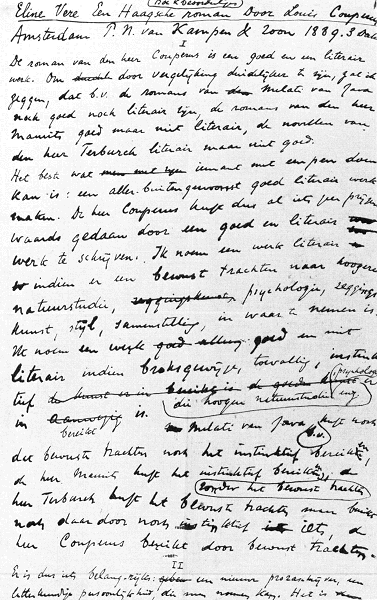 (boekbeoordeeling)
Eline Vere Een Haagsche roman Door Louis Couperus
Amsterdam P. N. van Kampen & zoon 1889. 3 Dln
I
De roman van den heer Couperus is een goed en een literair
werk. Om door vergelijking duidelijker te zijn, zal ik
zeggen, dat b.v. de romans van Melati van Java
noch goed noch literair zijn, de romans van den heer
Maurits goed maar niet literair, de novellen van
den heer Terburch literair maar niet goed.
Het beste wat iemant met een pen doen
kan is: een aller-buitengewoonst goed literair werk
maken. De heer Couperus heeft dus al iets zeer prijzens-
waards gedaan door een goed en literair
werk te schrijven. Ik noem een werk literair
indien er een bewust trachten naar hoogere
natuurstudie, psychologie, zeggings-
kunst, stijl, samenstelling, in waar te nemen is.
Ik noem een werk goed en niet
literair indien broksgewijze, toevallig, instinck-
tief die hoogere natuurstudie enz.
in bereikt is. Melati van Java heeft noch
b.v.
dit bewuste trachten noch het instinktief bereiken,
de heer Maurits heeft het instinktief bereiken, de
zonder het bewuste trachten
heer Terburch heeft het bewuste trachten maar bereikt
noch daardoor noch instinktief iet, de
heer Couperus bereikt door bewust trachten.
II
Er is dus iets belangrijks: een nieuwe prozaschrijver, een
letterkundige persoonlijkheid, die